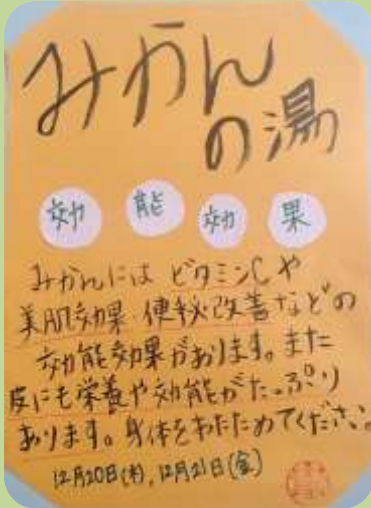 みかん
の湯
効 能 効 果
みかんには ビタミンCや
美肌効果 便秘改善などの
効能効果があります。また
皮にも栄養や効能がたっぷり
あります。身体をあたためてください。
12月20日(木), 12月21日(金)